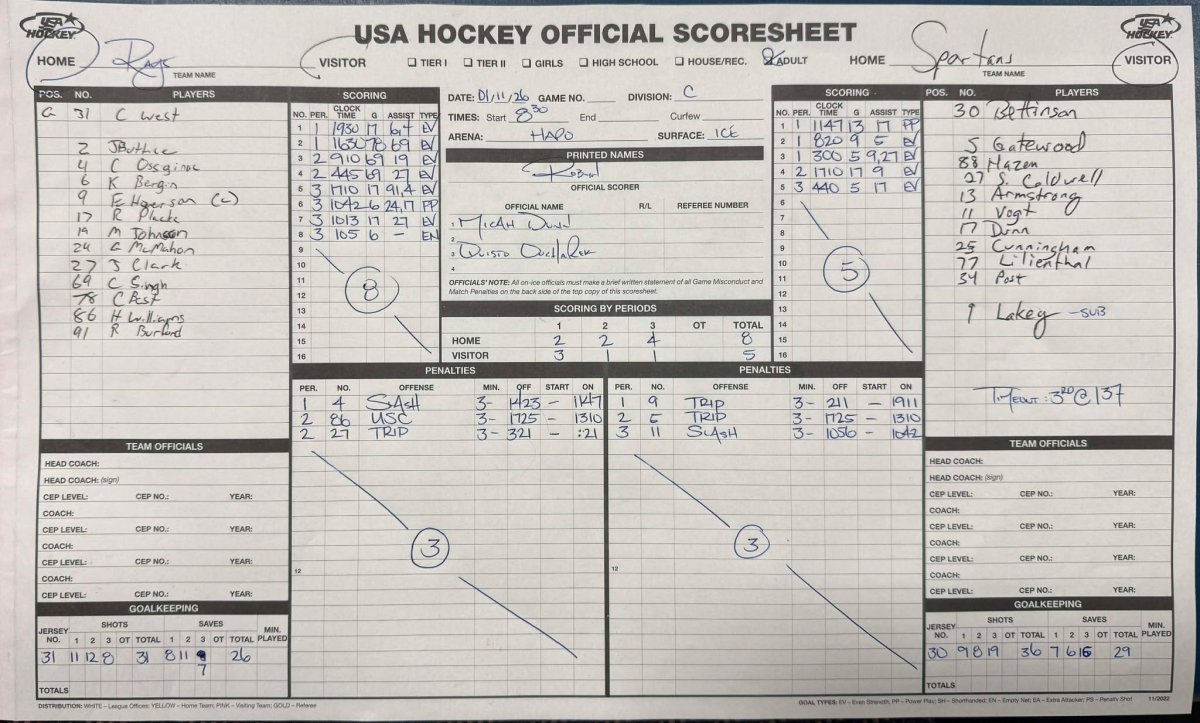 USA HOCKEY OFFICIAL SCORESHEET
USA HOCKEY
USA HOCKEY
HOME Rays VISITOR
TEAM NAME
☐ TIER I ☐ TIER II ☐ GIRLS ☐ HIGH SCHOOL ☐ HOUSE/REC. ☒ ADULT
HOME Spartans VISITOR
TEAM NAME
POS. NO. PLAYERS
G 31 C West
2 J Buthie
4
6 K Bergin
9
17 R Placke
19 M Johnson
24 G McMahon
27 J Clark
69 C Singh
78 C Best
86 H Williams
91 R Burford
SCORING
NO. PER. CLOCK TIME G ASSIST TYPE
1 1 1930 17 6,4 EV
2 1 1630 78 69 EV
3 2 910 69 19 EV
4 2 445 69 27 EV
5 3 1710 17 91,4 EV
6 3 1042 6 24,17 PP
7 3 1013 17 27 EV
8 3 105 6 - EN
9
10
11
12
13
14
15
16
8
DATE: 01/11/26 GAME NO. DIVISION: C
TIMES: Start 8:30 End Curfew
ARENA: HAPO SURFACE: ICE
PRINTED NAMES
OFFICIAL SCORER
OFFICIAL NAME R/L REFEREE NUMBER
1 MICAH DUNN
2
3
4
OFFICIALS' NOTE: All on-ice officials must make a brief written statement of all Game Misconduct and
Match Penalties on the back side of the top copy of this scoresheet.
SCORING BY PERIODS
1 2 3 OT TOTAL
HOME 2 2 4 8
VISITOR 3 1 1 5
SCORING
NO. PER. CLOCK TIME G ASSIST TYPE
1 1 1147 13 17 PP
2 1 820 9 5 EV
3 1 300 5 9,27 EV
4 2 1710 17 9 EV
5 3 440 5 17 EV
6
7
8
9
10
11
12
13
14
15
16
5
POS. NO. PLAYERS
30 Bettinson
5 Gatewood
88 Hazen
27 S. Caldwell
13 Armstrong
11 Vogt
17 Dunn
25 Cunningham
77 Lilienthal
34 Post
9 Lakey - SUB
TIMEOUT: 3RD @ 137
PENALTIES
PER. NO. OFFENSE MIN. OFF START ON
1 4 SLASH 3 - 1423 - 1147
2 86 USC 3 - 1725 - 1310
2 27 TRIP 3 - 321 - :21
12
3
PENALTIES
PER. NO. OFFENSE MIN. OFF START ON
1 9 TRIP 3 - 211 - 1911
2 5 TRIP 3 - 1725 - 1310
3 11 SLASH 3 - 1056 - 1042
12
3
TEAM OFFICIALS
HEAD COACH:
HEAD COACH: (sign)
CEP LEVEL: CEP NO.: YEAR:
COACH:
CEP LEVEL: CEP NO.: YEAR:
COACH:
CEP LEVEL: CEP NO.: YEAR:
COACH:
CEP LEVEL: CEP NO.: YEAR:
GOALKEEPING
JERSEY NO. SHOTS 1 2 3 OT TOTAL SAVES 1 2 3 OT TOTAL MIN. PLAYED
31 11 12 8 31 8 11 7 26
TOTALS
TEAM OFFICIALS
HEAD COACH:
HEAD COACH: (sign)
CEP LEVEL: CEP NO.: YEAR:
COACH:
CEP LEVEL: CEP NO.: YEAR:
COACH:
CEP LEVEL: CEP NO.: YEAR:
COACH:
CEP LEVEL: CEP NO.: YEAR:
GOALKEEPING
JERSEY NO. SHOTS 1 2 3 OT TOTAL SAVES 1 2 3 OT TOTAL MIN. PLAYED
30 9 8 19 36 7 6 16 29
TOTALS
DISTRIBUTION: WHITE – League Offices; YELLOW – Home Team; PINK – Visiting Team; GOLD – Referee
GOAL TYPES: EV – Even Strength; PP – Power Play; SH – Shorthanded; EN – Empty Net; EA – Extra Attacker; PS – Penalty Shot 11/2022